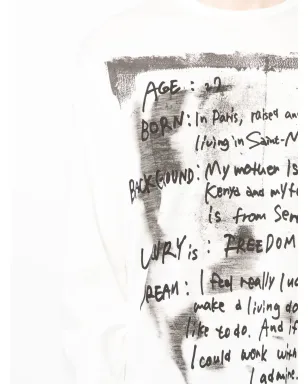 AGE : 27
BORN : In Paris, raised an
living in Saint-
BACKGOUND : My mother Is
Kenya and my f
is from Sen
LUXRY is : FREEDOM
REAM : I feel really luc
make a living do
like to do. And if
I could work with
I admire.